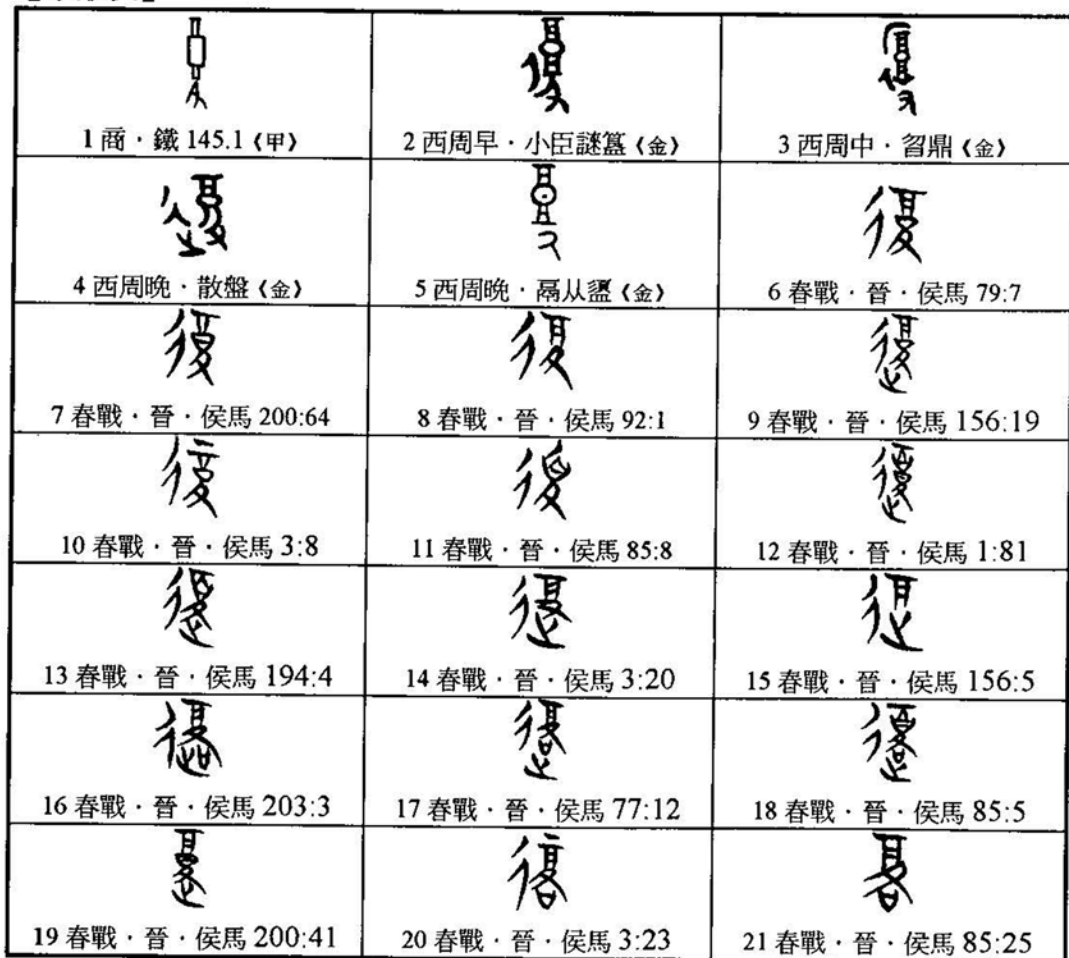 1 商·鐵 145.1《甲》 2 西周早·小臣謎簋《金》 3 西周中·曶鼎《金》
4 西周晚·散盤《金》 5 西周晚·鬲从盨《金》 6 春戰·晉·侯馬 79:7
7 春戰·晉·侯馬 200:64 8 春戰·晉·侯馬 92:1 9 春戰·晉·侯馬 156:19
10 春戰·晉·侯馬 3:8 11 春戰·晉·侯馬 85:8 12 春戰·晉·侯馬 1:81
13 春戰·晉·侯馬 194:4 14 春戰·晉·侯馬 3:20 15 春戰·晉·侯馬 156:5
16 春戰·晉·侯馬 203:3 17 春戰·晉·侯馬 77:12 18 春戰·晉·侯馬 85:5
19 春戰·晉·侯馬 200:41 20 春戰·晉·侯馬 3:23 21 春戰·晉·侯馬 85:25